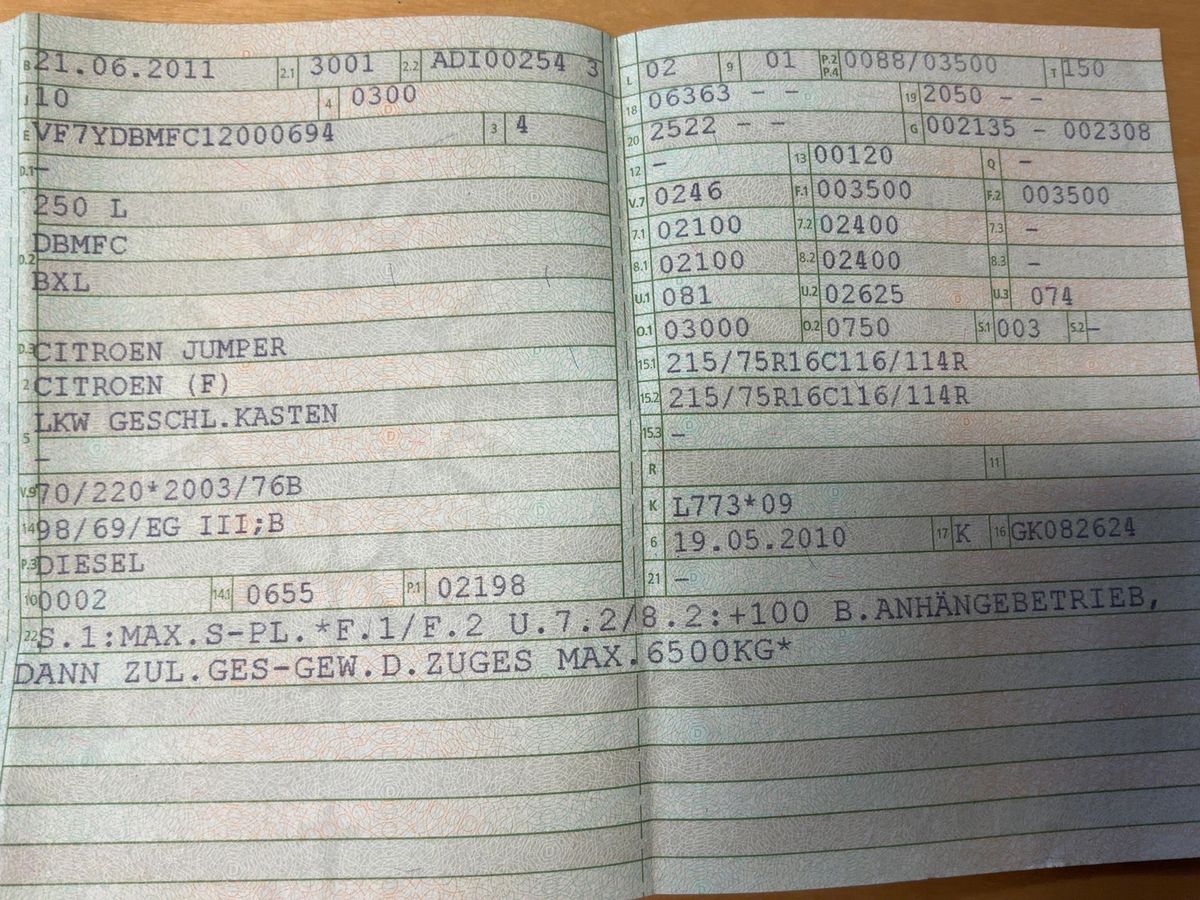 B 21.06.2011 2.1 3001 2.2 ADI00254 3
J 10 4 0300
E VF7YDBMFC12000694 3 4
D.1 –
250 L
DBMFC
D.2 BXL
D.3 CITROEN JUMPER
2 CITROEN (F)
LKW GESCHL.KASTEN
5 –
V.9 70/220*2003/76B
14 98/69/EG III;B
P.3 DIESEL
10 0002 14.1 0655 P.1 02198
L 02 9 01 P.2 P.4 0088/03500 T 150
18 06363 – – 19 2050 – –
20 2522 – – G 002135 – 002308
12 – 13 00120 Q –
V.7 0246 F.1 003500 F.2 003500
7.1 02100 7.2 02400 7.3 –
8.1 02100 8.2 02400 8.3 –
U.1 081 U.2 02625 U.3 074
O.1 03000 O.2 0750 S.1 003 S.2 –
15.1 215/75R16C116/114R
15.2 215/75R16C116/114R
15.3 –
R 11
K L773*09
6 19.05.2010 17 K 16 GK082624
21 –
22 S.1:MAX.S-PL.*F.1/F.2 U.7.2/8.2:+100 B.ANHÄNGEBETRIEB,
DANN ZUL.GES-GEW.D.ZUGES MAX.6500KG*